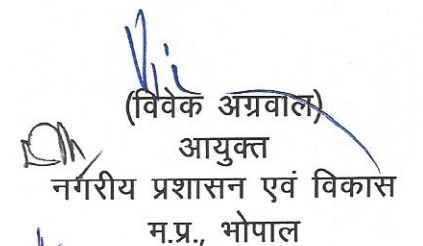 (विवेक अग्रवाल)
आयुक्त
नगरीय प्रशासन एवं विकास
म.प्र., भोपाल